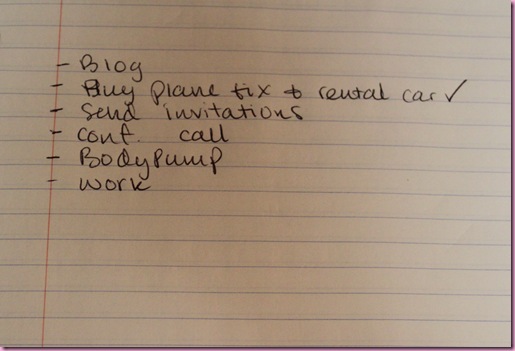 - Blog
- Buy plane tix + rental car ✓
- Send invitations
- conf. call
- BodyPump
- work